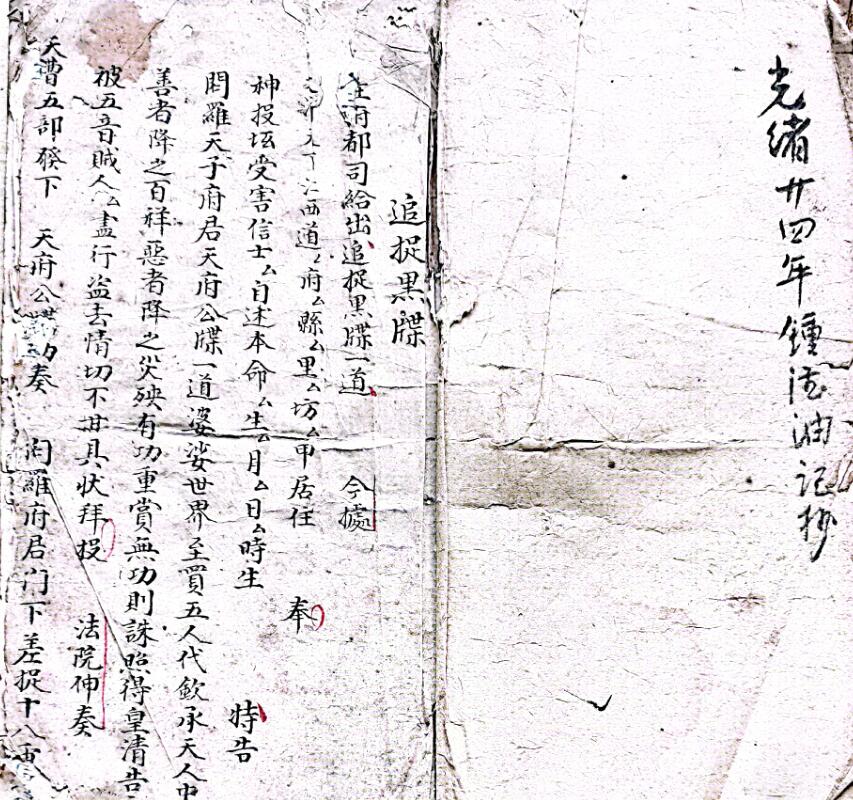 光緒廿四年鍾法油記抄
追捉黑牒
府都司給出追捉黑牒一道 今據
江西道厶府厶縣厶里厶坊厶甲居住 奉
神投坛受害信士厶自述本命厶生厶月厶日厶時生 特告
閻羅天子府居天府公牒一道婆娑世界至買五人代欽承天人中
善者降之百祥惡者降之災殃有功重賞無功則誅照得皇清告
被五音賊人厶盡行盜去情切不甘具狀拜投 法院伸奏
天曹五部發下 天府公牒劝奏 閻羅府居门下差捉十八